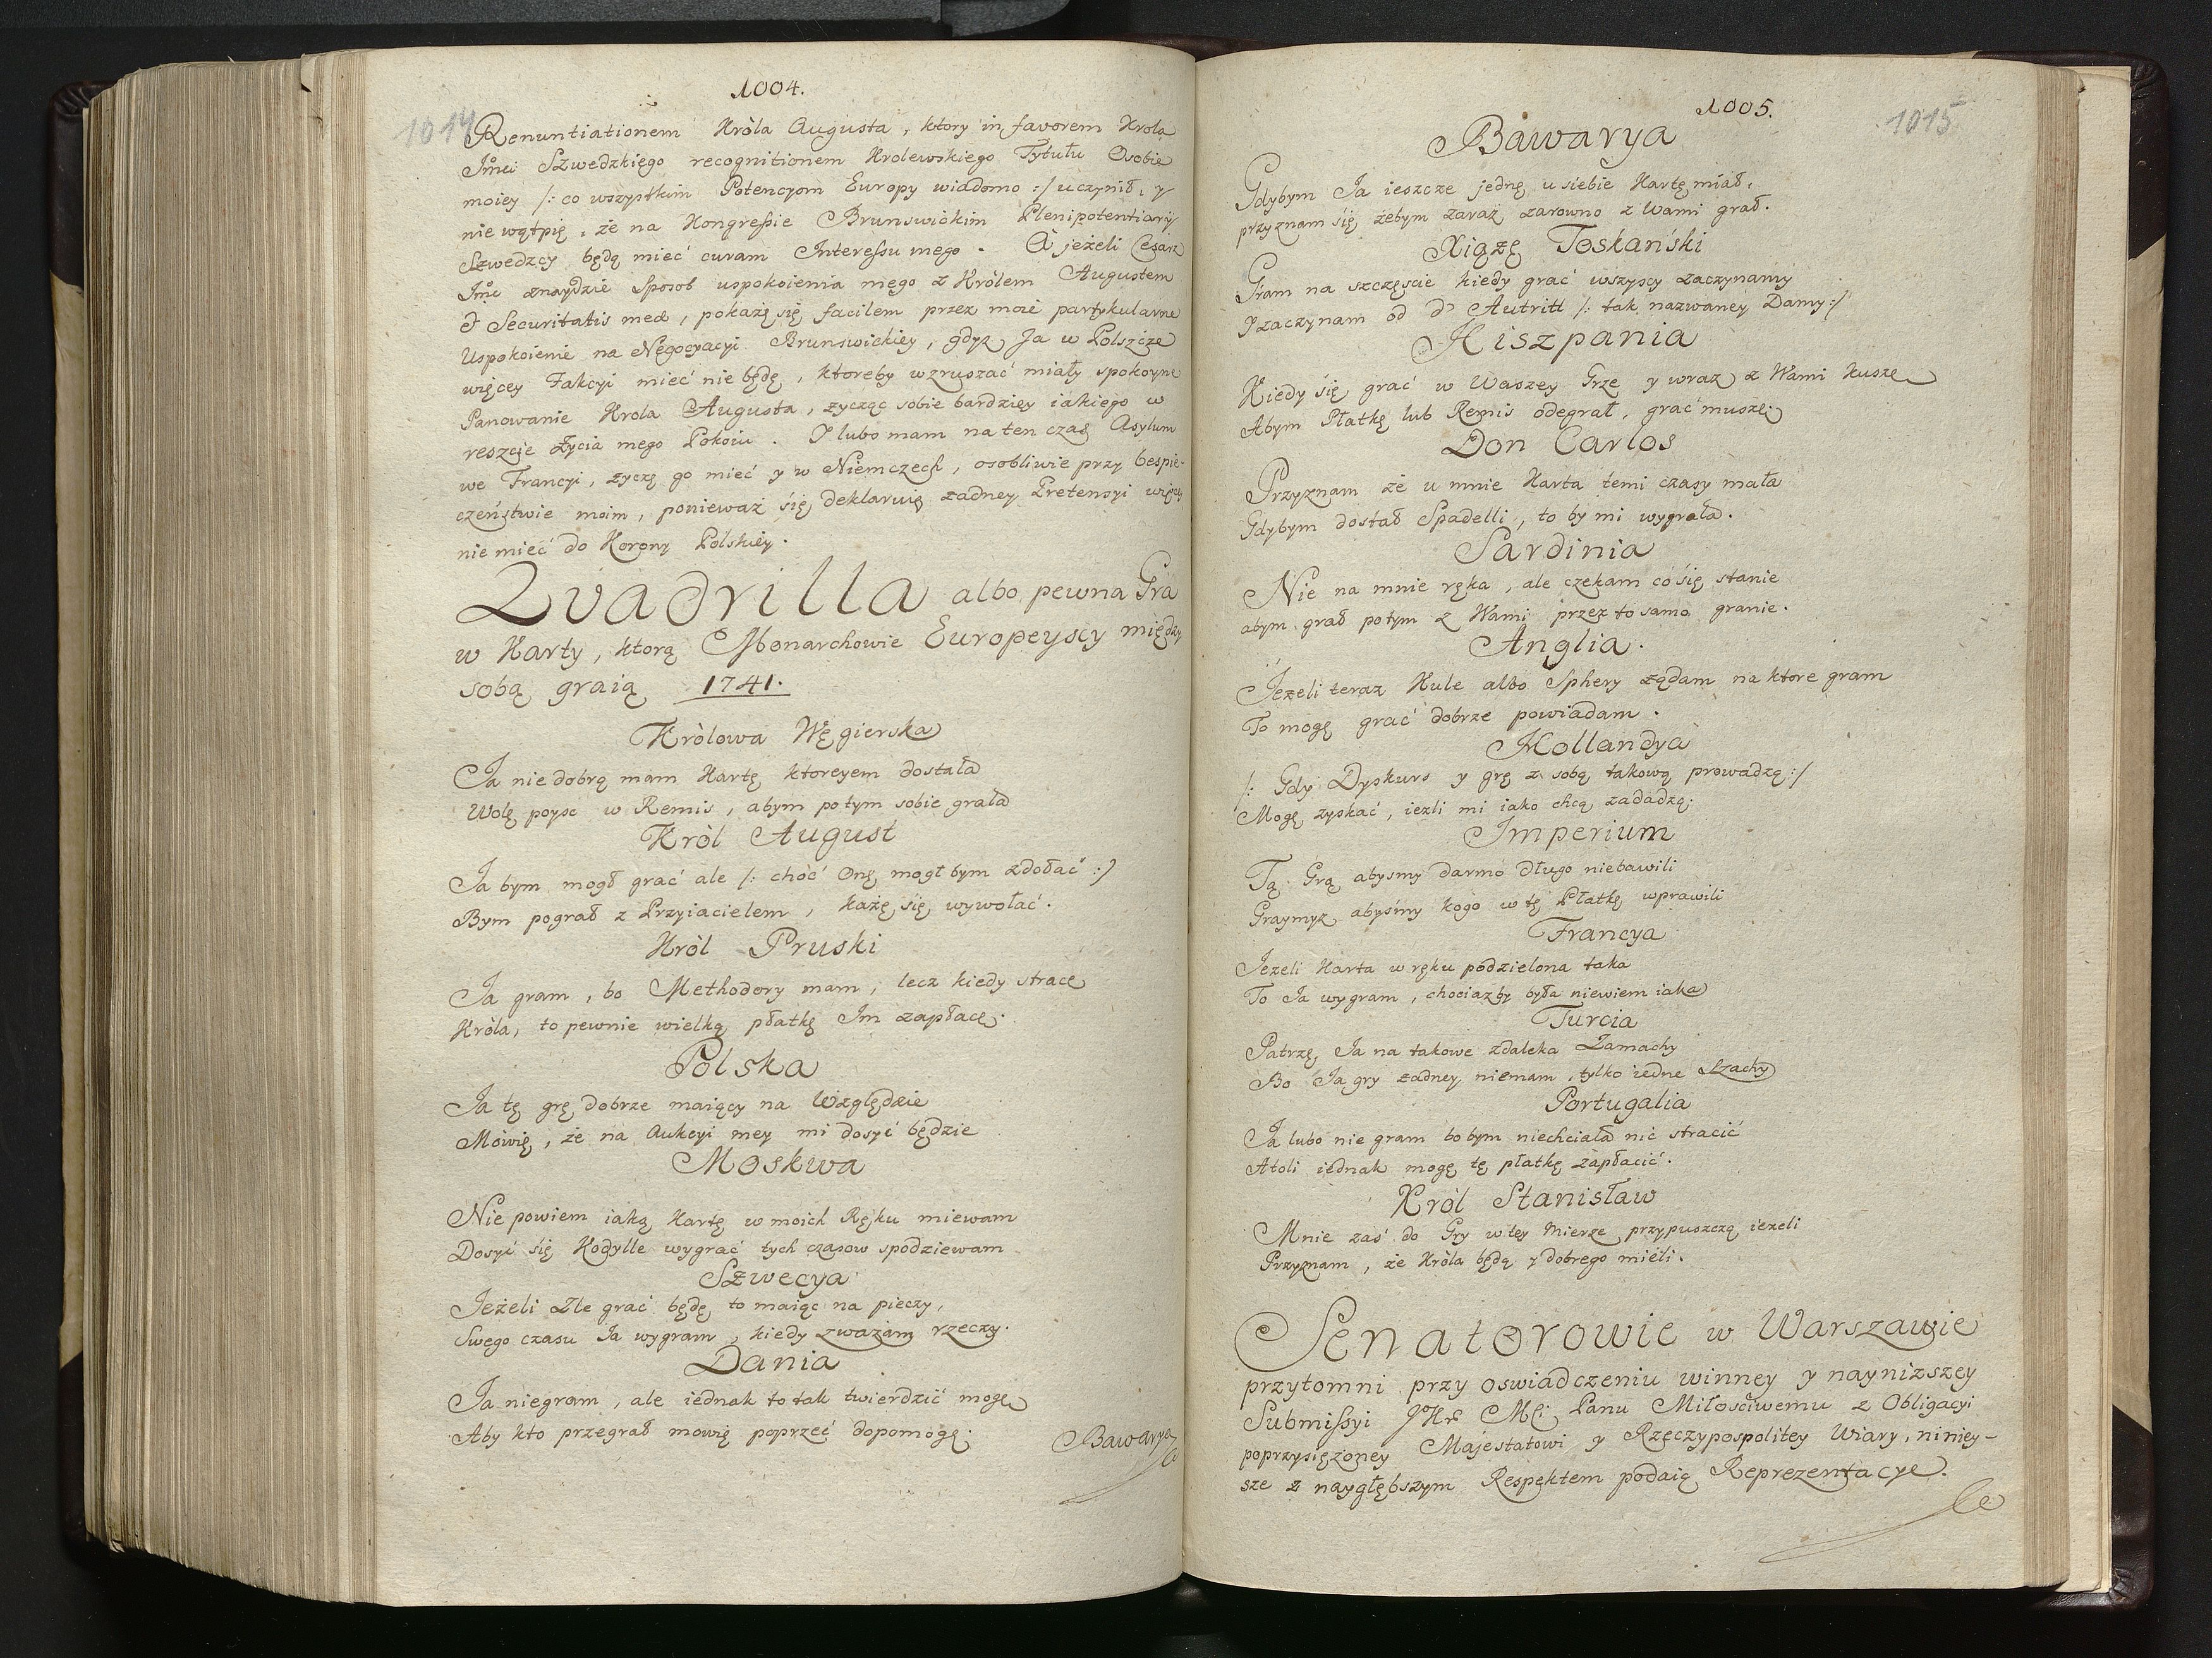 1004.
1014
Renuntiationem Króla Augusta, ktory in favorem Krola
Jmci Szwedzkiego recognitionem Krolewskiego Tytułu Osobie
moiey /: co wszystkim Potencyom Europy wiadomo :/ uczynił, y
nie wątpię, że na Kongreſsie Brunswickim Plenipotentiarij
Szwedzcy będą mieć curam Intereſsu mego. A jeżeli Cesarz
Jmc znaydzie sposob uspokoienia mego z Królem Augustem
& Securitatis meæ, pokażę się facilem przez moie partykularne
Uspokoienie na Negocyacyi Brunswickiey, gdyz Ja w Polszcze
więcey Fakcyi mieć nie będę, ktoreby wzruszać miały spokoyne
Panowanie Krola Augusta, zycząc sobie bardziey iakiego w
reszcie życia mego Pokoiu. Y lubo mam na ten czas Asylum
we Francyi, zyczę go mieć y w Niemczech, osobliwie przy bespie-
czeństwie moim, ponieważ się deklaruię zadney Pretensyi więcey
nie mieć do Korony Polskiey.
Quadrilla albo pewna Gra
w Karty, ktorą Monarchowie Europeyscy między
sobą graią 1741.
Królowa Węgierska
Ja nie dobrą mam Kartę ktoreyem dostała
Wolę poysc w Remis, abym potym sobie grała
Król August
Ja bym mogł grać ale /: choć Onę mogł bym zdołać :/
Bym pograł z Przyiacielem, każę się wywołać.
Król Pruski
Ja gram, bo Methodory mam, lecz kiedy stracę
Króla, to pewnie wielką płatkę Im zapłacę.
Polska
Ja tę grę dobrze maiący na Względzie
Mówię, że na Aukcyi mey mi dosyć będzie
Moskwa
Nie powiem iaką Kartę w moich Ręku miewam
Dosyć się Kodylle wygrać tych czasow spodziewam
Szwecya
Jeżeli Zle grać będę to maiąc na pieczy,
Swego czasu Ja wygram, kiedy zważam rzeczy.
Dania
Ja niegram, ale iednak to tak twierdzić mogę
Aby kto przegrał mowię poprzeć dopomogę.
Bawarya
1005.
1015
Bawarya
Gdybym Ja ieszcze jednę u siebie Kartę miał,
przyznam się żebym zaraz zarowno z Wami grał.
Xiążę Toskański
Gram na szczęscie kiedy grać wszyscy zaczynamy
Y zaczynam od d' Autritt /: tak nazwaney Damy :/
Hiszpania
Kiedy się grać w Waszey Grze y wraz z Wami kuszę
Abym Płatkę lub Remis odegrał, grać muszę.
Don Carlos
Przyznam że u mnie Karta temi czasy mała
Gdybym dostał Spadelli, to by mi wygrała.
Sardinia
Nie na mnie ręka, ale czekam co się stanie
abym grał potym z Wami przez to samo granie.
Anglia.
Jezeli teraz Kule albo Sphery żądam na ktore gram
To mogę grać dobrze powiadam.
Hollandya
/: Gdy Dyskurs y grę z sobą takową prowadzą :/
Mogę zyskać, iezli mi iako chcą zadadzą.
Imperium
Tą Grą abysmy darmo długo niebawili
Graymyz abyśmy kogo w tę Płatkę wprawili
Francya
Jezeli Karta w ręku podzielona taka
To Ja wygram, chociazby była niewiem iaka
Turcia
Patrzę Ja na takowe zdaleka Zamachy
Bo Ja gry zadney niemam, tylko iedne Szachy
Portugalia
Ja lubo nie gram bo bym niechciała nic stracić
Atoli iednak mogę tę płatkę zapłacić.
Król Stanisław
Mnie zaś do Gry w tey Mierze przypuszczą iezeli
Przyznam, że Króla będą y dobrego mieli.
Senatorowie w Warszawie
przytomni przy oswiadczeniu winney y naynizszey
Submiſsyi JKr Mci Panu Miłościwemu z Obligacyi
poprzysiężoney Majestatowi y Rzeczypospolitey Wiary, niniey-
sze z naygłębszym Respektem podaią Reprezentacye.